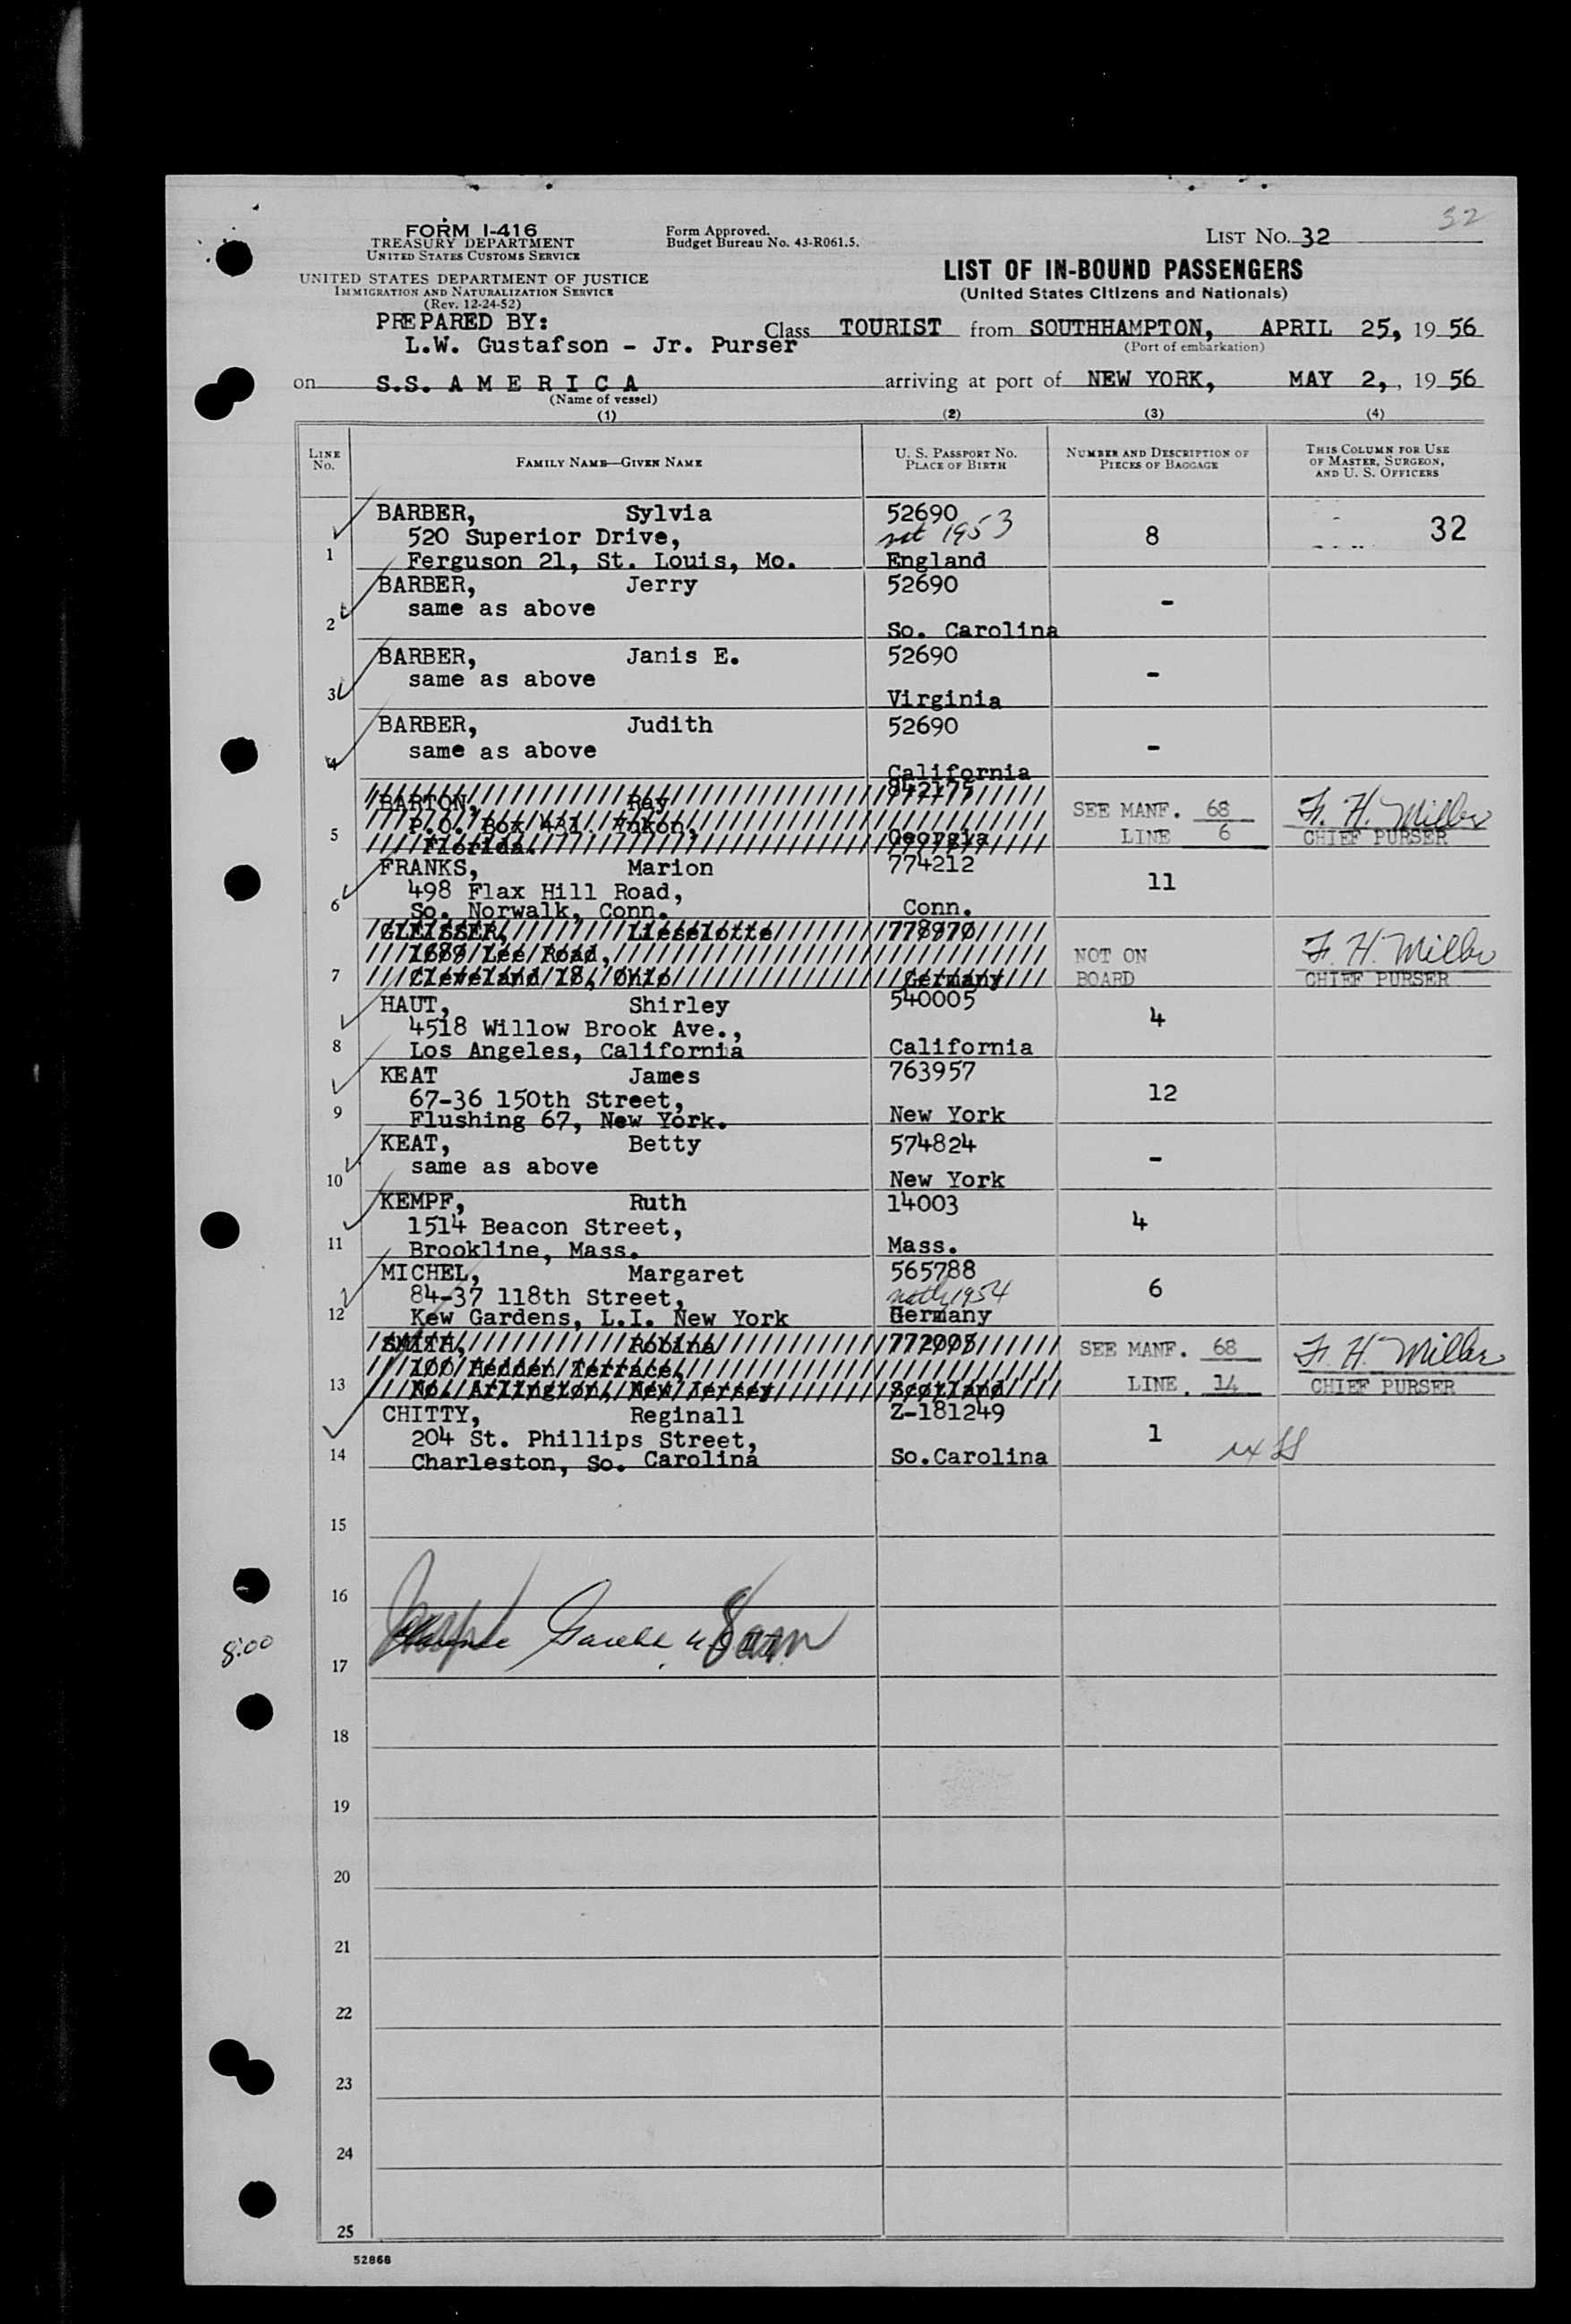 32
FORM I-416
TREASURY DEPARTMENT
UNITED STATES CUSTOMS SERVICE
Form Approved.
Budget Bureau No. 43-R061.5.
LIST NO. 32
UNITED STATES DEPARTMENT OF JUSTICE
IMMIGRATION AND NATURALIZATION SERVICE
(Rev. 12-24-52)
LIST OF IN-BOUND PASSENGERS
(United States Citizens and Nationals)
PREPARED BY:
L.W. Gustafson - Jr. Purser
Class TOURIST from SOUTHHAMPTON, APRIL 25, 19 56
(Port of embarkation)
on S.S. A M E R I C A arriving at port of NEW YORK, MAY 2, , 19 56
(Name of vessel)
(1) (2) (3) (4)
LINE NO. FAMILY NAME—GIVEN NAME U. S. PASSPORT NO. PLACE OF BIRTH NUMBER AND DESCRIPTION OF PIECES OF BAGGAGE THIS COLUMN FOR USE OF MASTER, SURGEON, AND U. S. OFFICERS
BARBER, Sylvia 52690
520 Superior Drive, 1953 8 32
1 Ferguson 21, St. Louis, Mo. England
BARBER, Jerry 52690
same as above -
2 So. Carolina
BARBER, Janis E. 52690
same as above -
3 Virginia
BARBER, Judith 52690
same as above -
4 California
BARTON, Ray 842175
P.O. Box 431 SEE MANF. 68 F. H. Miller
5 Florida. Georgia LINE 6 CHIEF PURSER
FRANKS, Marion 774212
498 Flax Hill Road, 11
6 So. Norwalk, Conn. Conn.
GLEISSER, Lieselotte 778970
1689 Lee Road, NOT ON F. H. Miller
7 Cleveland 18, Ohio Germany BOARD CHIEF PURSER
HAUT, Shirley 540005
4518 Willow Brook Ave., 4
8 Los Angeles, California California
KEAT James 763957
67-36 150th Street, 12
9 Flushing 67, New York. New York
KEAT, Betty 574824
same as above -
10 New York
KEMPF, Ruth 14003
1514 Beacon Street, 4
11 Brookline, Mass. Mass.
MICHEL, Margaret 565788
84-37 118th Street, 1954 6
12 Kew Gardens, L.I. New York Germany
SMITH, Robina 772008 SEE MANF. 68 F. H. Miller
100 Hedden Terrace,
13 No. Arlington, New Jersey Scotland LINE. 14 CHIEF PURSER
CHITTY, Reginall Z-181249
204 St. Phillips Street, 1
14 Charleston, So. Carolina So.Carolina
15
16
8:00
17
18
19
20
21
22
23
24
25
52868